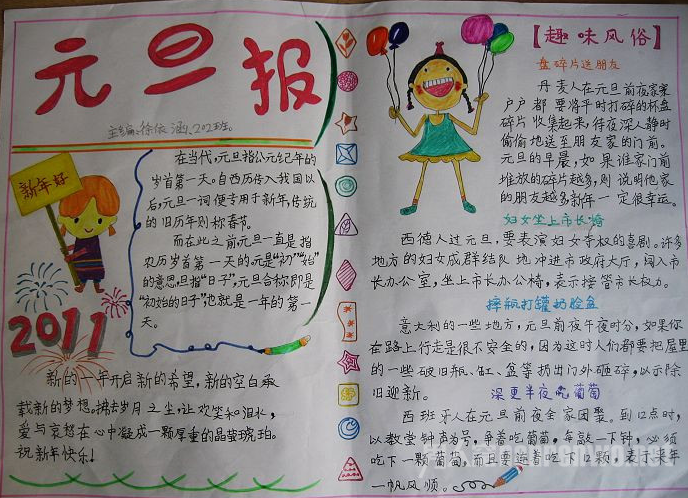 元旦报
主编:徐依涵、202班。
新年好
在当代,元旦指公元纪年的
岁首第一天。自西历传入我国以
后,元旦一词便专用于新年,传统
的旧历年则称春节。
而在此之前元旦一直是指
农历岁首第一天的。元是“初”“始”
的意思,旦指“日子”,元旦合称即是
“初始的日子”,也就是一年的第一
天。
2011
新的一年开启新的希望,新的空白承
载新的梦想。拂去岁月之尘,让欢笑和泪水,
爱与哀愁在心中凝成一颗厚重的晶莹琥珀。
祝新年快乐!
【趣味风俗】
盘碎片送朋友
丹麦人在元旦前夜家家
户户都要将平时打碎的杯盘
碎片收集起来,待夜深人静时
偷偷地送至朋友家的门前。
元旦的早晨,如果谁家门前
堆放的碎片越多,则说明他家
的朋友越多新年一定很幸运。
妇女坐上市长椅
西德人过元旦,要表演妇女夺权的喜剧。许多
地方的妇女成群结队地冲进市政府大厅,闯入市
长办公室,坐上市长办公椅,表示接管市长权力。
摔瓶打罐扔脸盆
意大利的一些地方,元旦前夜午夜时分,如果你
在路上行走是很不安全的,因为这时人们都要把屋里
的一些破旧瓶、缸、盆等扔出门外砸碎,以示除
旧迎新。
深更半夜吃葡萄
西班牙人在元旦前夜全家团聚。到12点时,
以教堂钟声为号,争着吃葡萄。每敲一下钟,必须
吃下一颗葡萄,而且要连着吃下12颗,表示来年
一帆风顺。